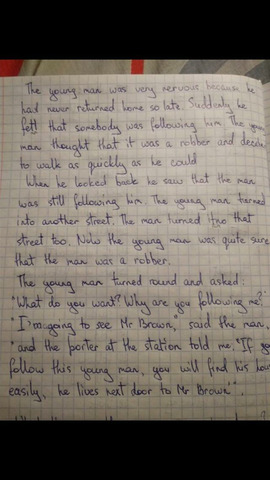 The young man was very nervous because he
had never returned home so late. Suddenly he
felt that somebody was following him The youn
man thought that it was a robber and decide
to walk as quickly as he could
When he looked back he saw that the man
was still following him. The young man turned
into another street. The man turned into that
street too. Now the young man was quite sure
that the man was a robber.
The young man turned round and asked:
"What do you want? Why are you following me?"
"I'm going to see Mr Brown," said the man,
"and the porter at the station told me, "If you
follow this young man, you will find his hous
easily, he lives next door to Mr Brown"".